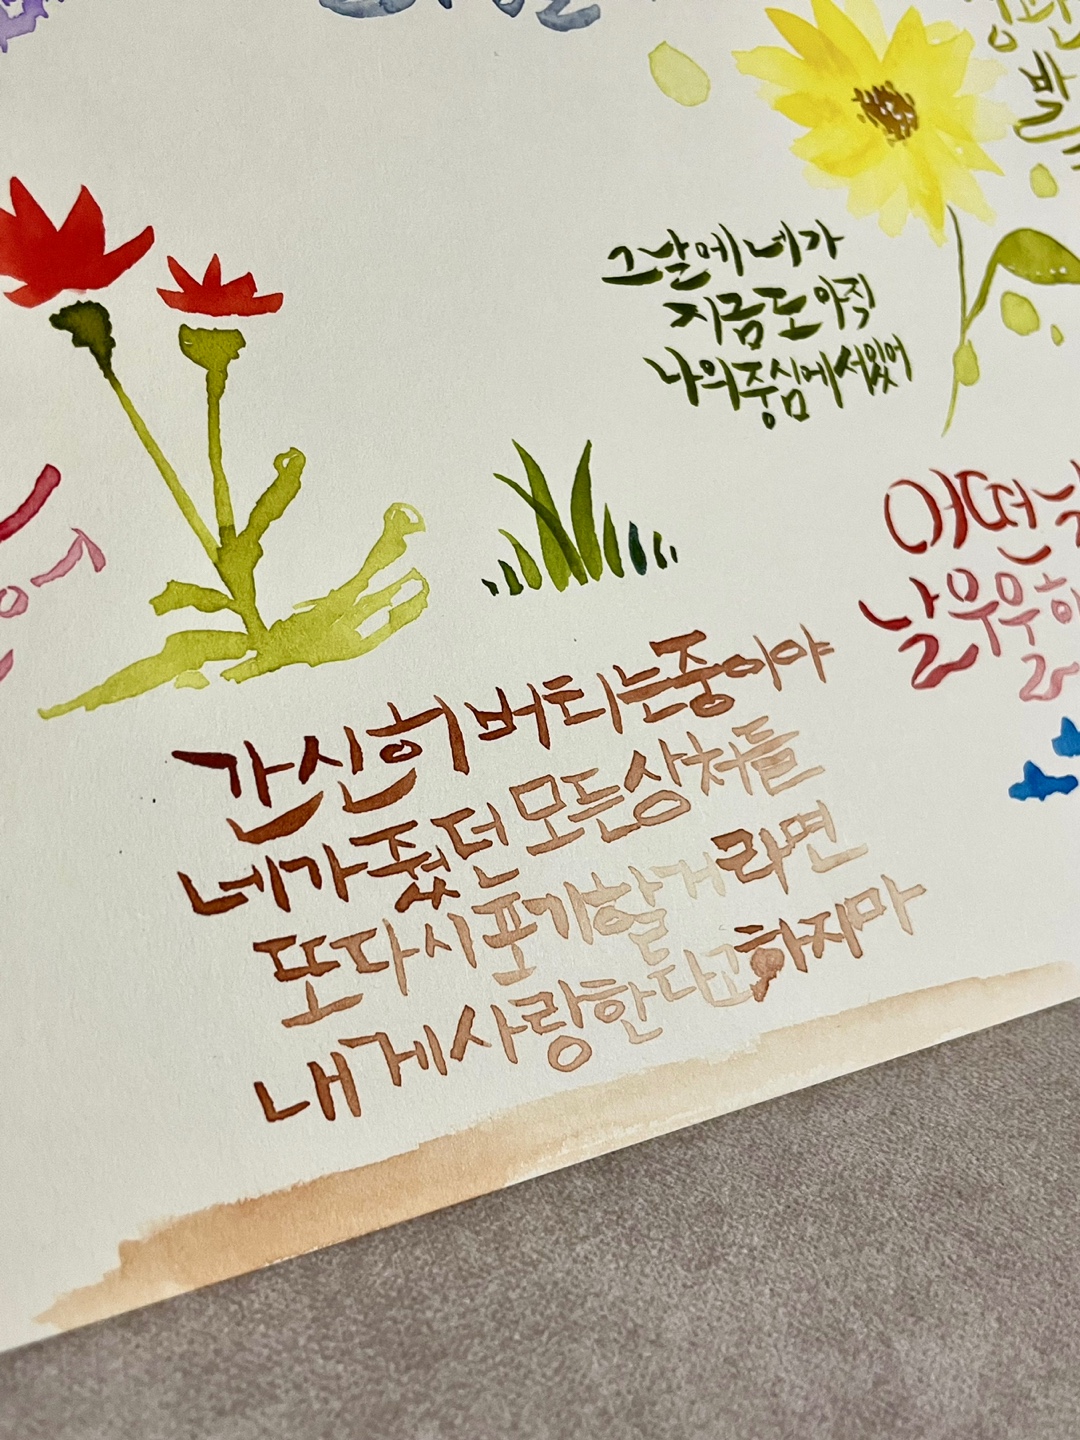 그날에 네가
지금도 아직
나의 중심에 서있어
어떤
날 우울하
간신히 버티는 중이야
네가 줬던 모든 상처들
또다시 포기할 거라면
내게 사랑한다고 하지마